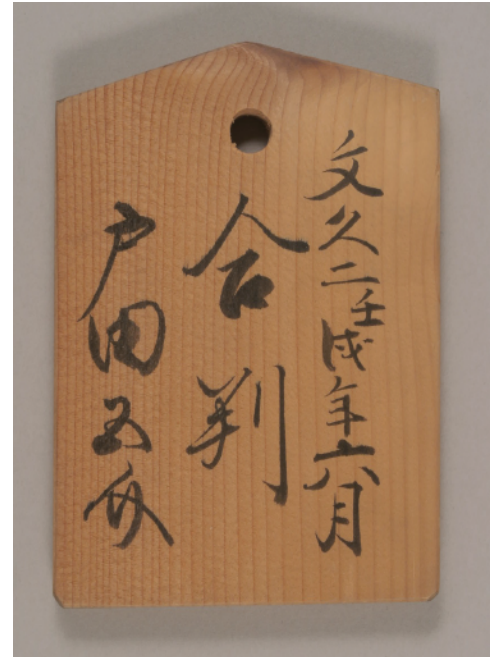 文久二壬戌年六月
合判
戸田五